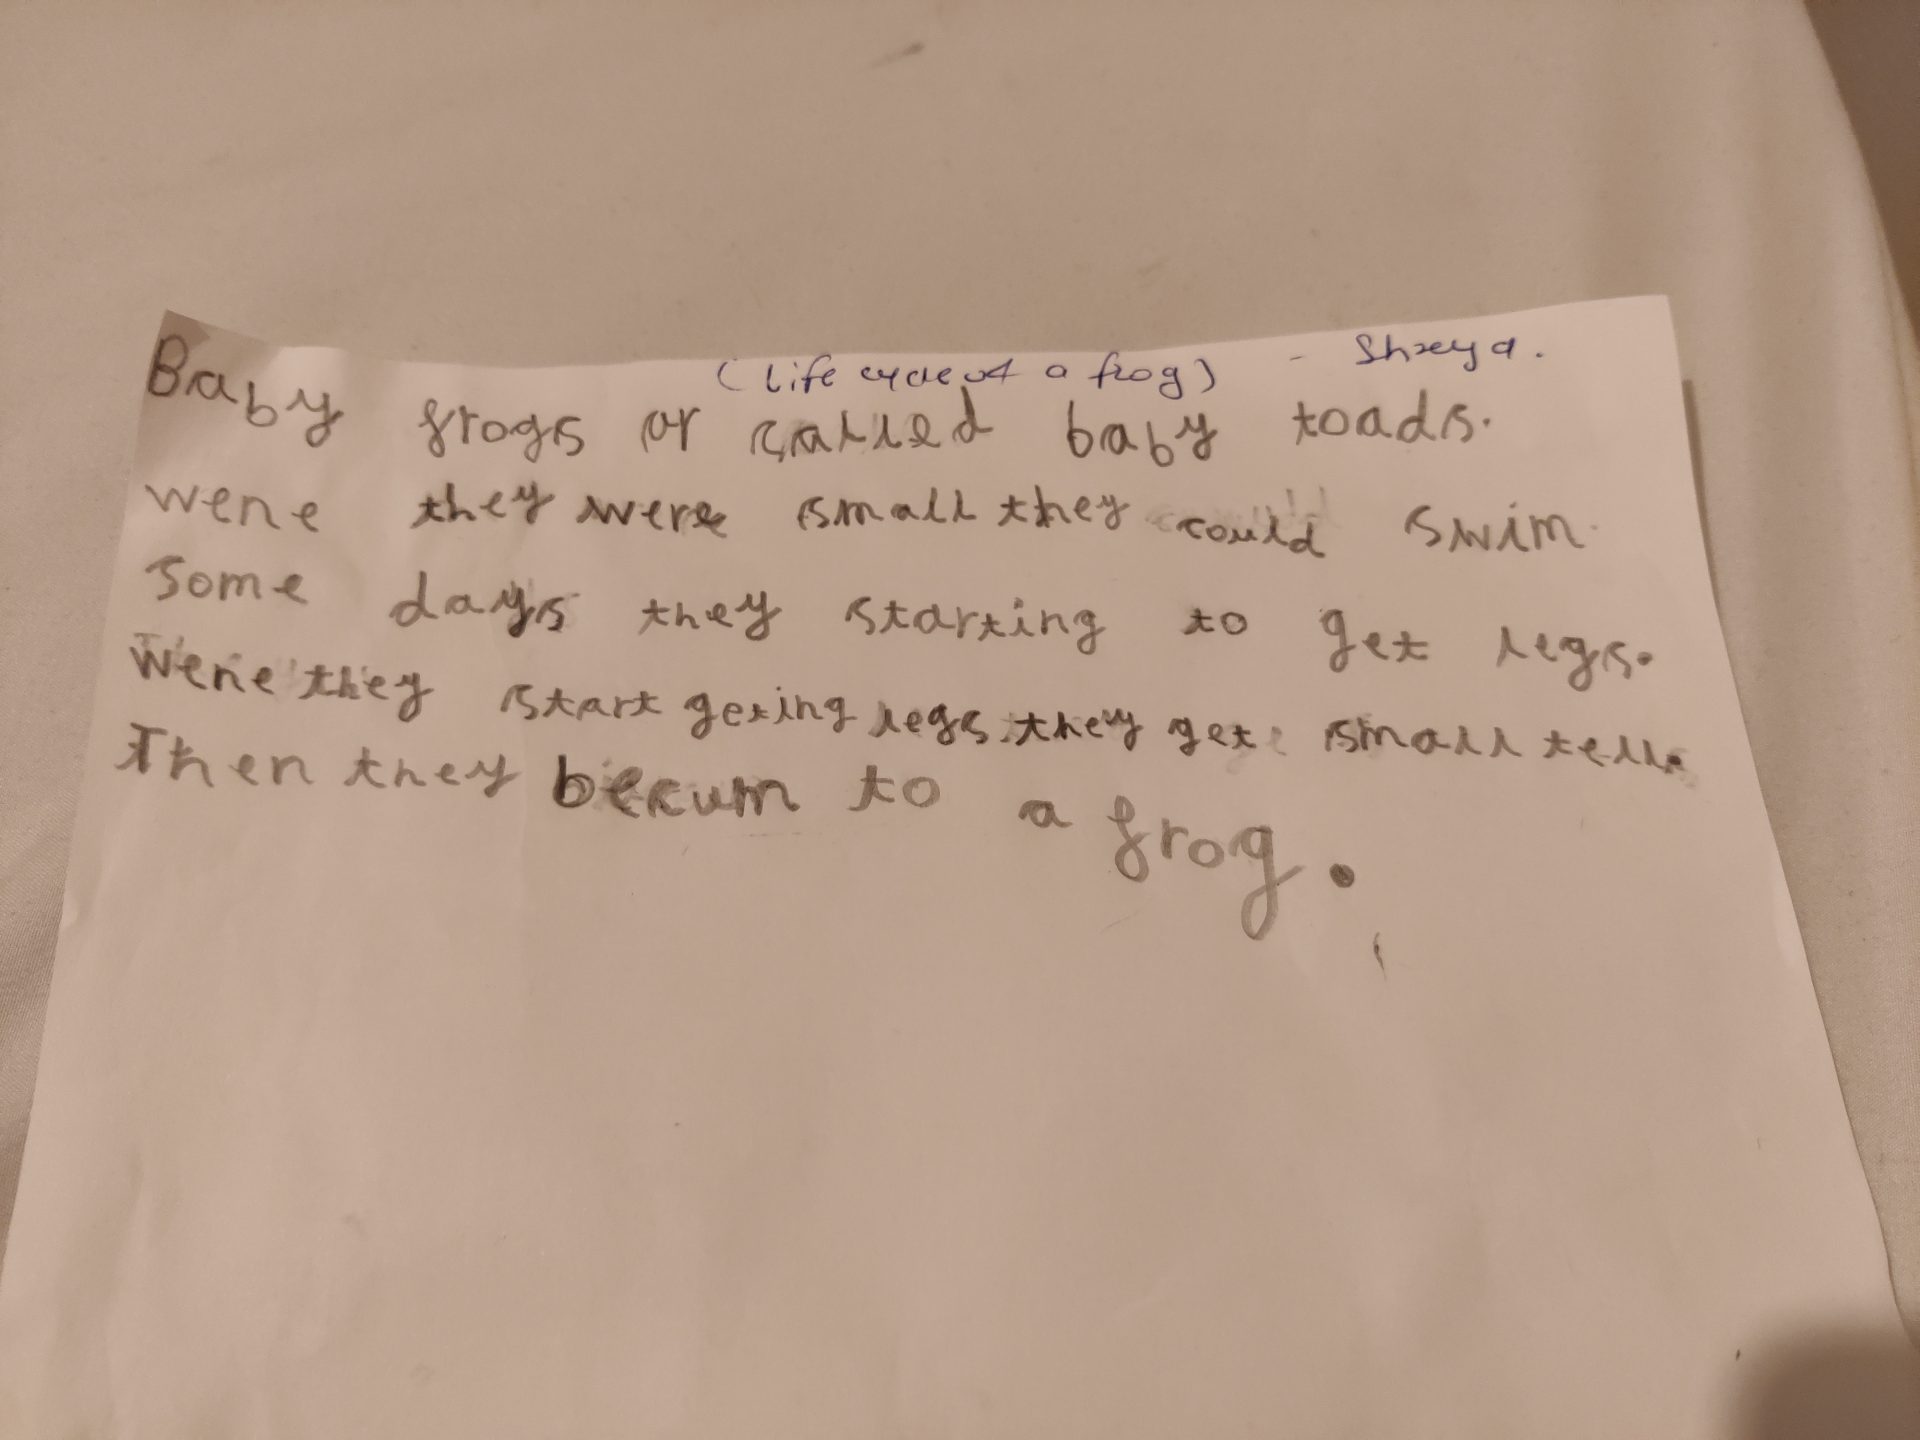 (Life cycle of a frog) - Shreya.
Baby frogs or called baby toads.
wene they were small they could swim.
Some days they starting to get legs.
Wene they start geting legs they get small tell.
Then they becum to a frog.